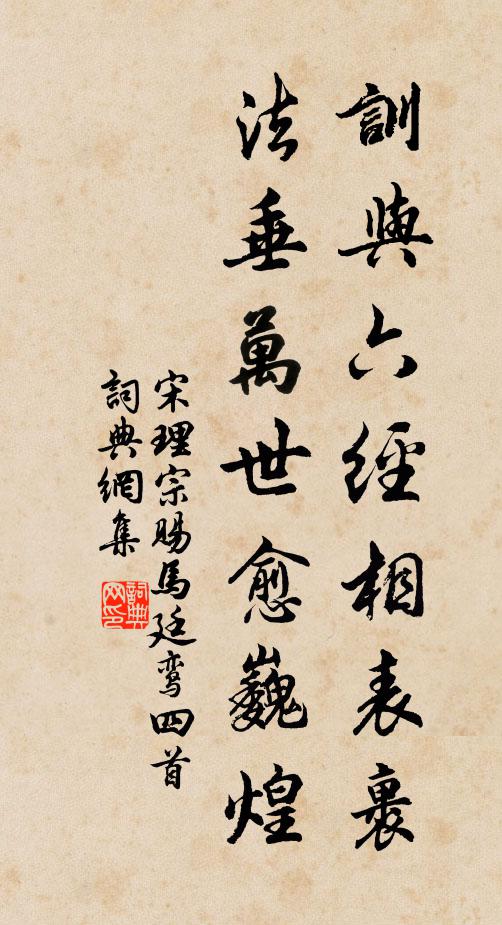 訓與六經相表裏
法垂萬世愈巍煌
宋理宗賜馬廷鸾四首
詞典網集
詞典
网印